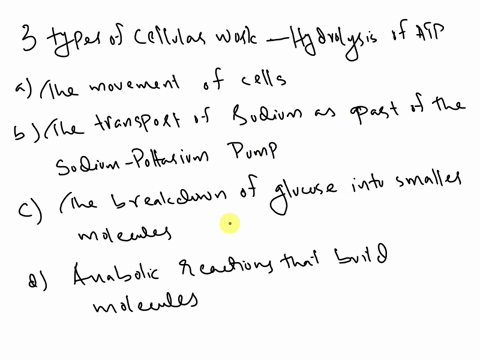 3 types of Cellular work - Hydrolysis of ATP
a) The movement of cells
b) The transport of Sodium as part of the
Sodium-Pottasium Pump
c) The breakdown of glucose into smaller
molecules
d) Anabolic reactions that build
molecules